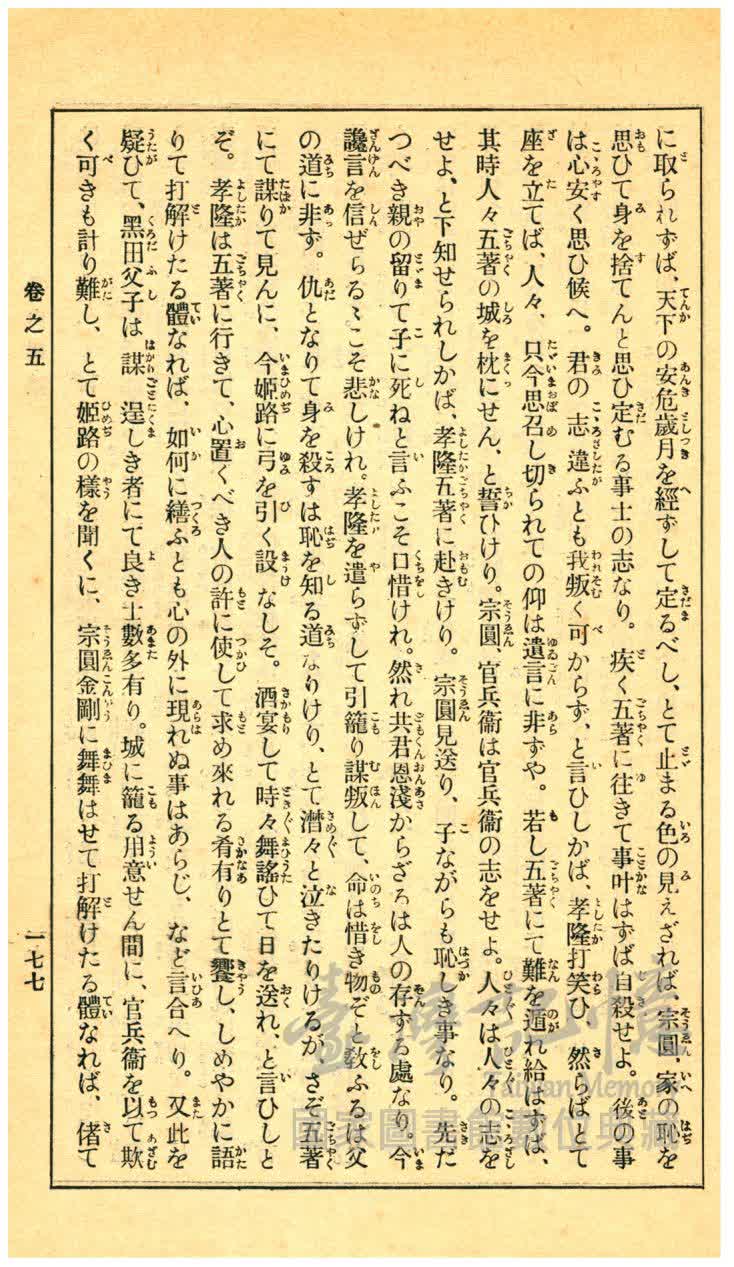 に取られずば、天下の安危歲月を經ずして定るべし、とて止まる色の見えざれば、宗圓、家の恥を
思ひて身を捨てんと思ひ定むる事士の志なり。疾く五著に往きて事叶はずば自殺せよ。後の事
は心安く思ひ候へ。君の志違ふとも我叛く可からず、と言ひしかば、孝隆打笑ひ、然らばとて
座を立てば、人々、只今思召し切られての仰は遺言に非ずや。若し五著にて難を遁れ給はずば、
其時人々五著の城を枕にせん、と誓ひけり。宗圓、官兵衞は官兵衞の志をせよ。人々は人々の志を
せよ、と下知せられしかば、孝隆五著に赴きけり。宗圓見送り、子ながらも恥しき事なり。先だ
つべき親の留りて子に死ねと言ふこそ口惜けれ。然れ共君恩淺からざるは人の存ずる處なり。今
讒言を信ぜらるゝこそ悲しけれ。孝隆を遣らずして引籠り謀叛して、命は惜き物ぞと敎ふるは父
の道に非ず。仇となりて身を殺すは恥を知る道なりけり、とて潸々と泣きたりけるが、さぞ五著
にて謀りて見んに、今姬路に弓を引く設なしそ。酒宴して時々舞謠ひて日を送れ、と言ひしと
ぞ。孝隆は五著に行きて、心置くべき人の許に使して求め來れる肴有りとて饗し、しめやかに語
りて打解けたる體なれば、如何に繕ふとも心の外に現れぬ事はあらじ、など言合へり。又此を
疑ひて、黑田父子は謀逞しき者にて良き士數多有り。城に籠る用意せん間に、官兵衞を以て欺
く可きも計り難し、とて姬路の樣を聞くに、宗圓金剛に舞舞はせて打解けたる體なれば、偖て
卷之五
一七七
臺灣記憶
Taiwan Memory
國家圖書館數位典藏